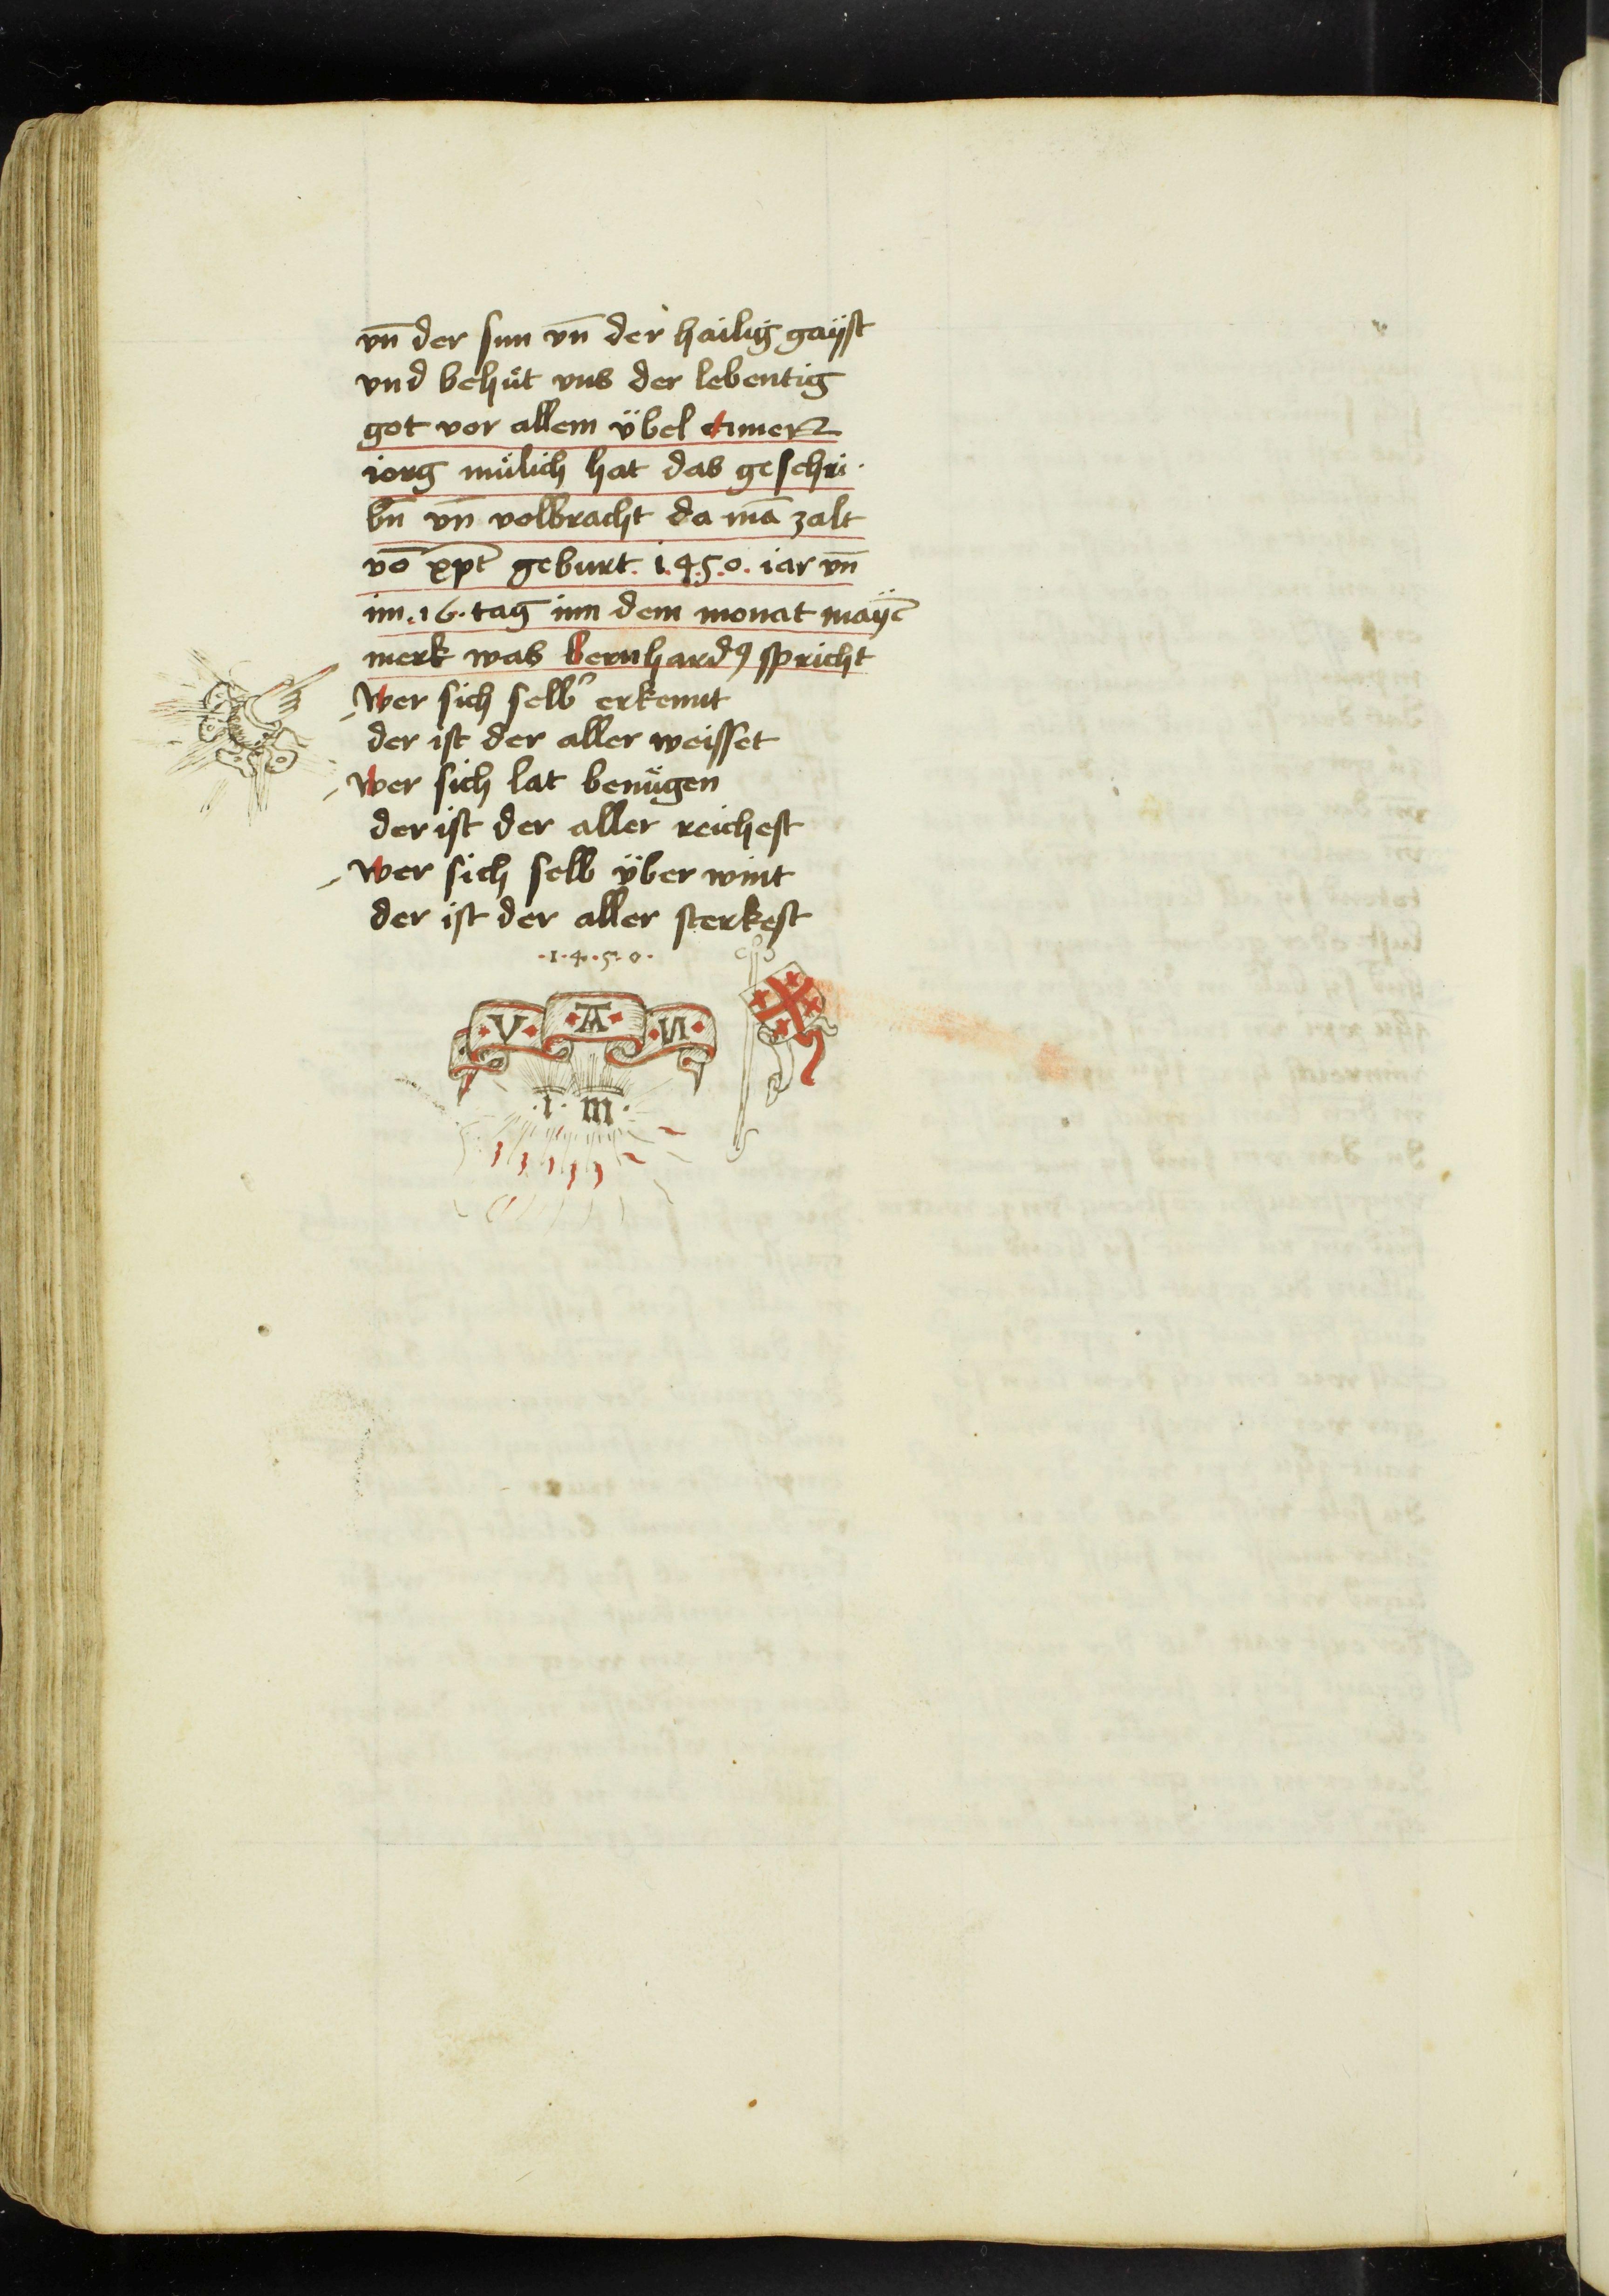 vn̄ der sun vn̄ der hailig gaÿst
vnd behuͤt vns der lebentig
got vor allem übel Amen
iorg muͤlich hat das geschri·
bn̄ vn̄ volbracht da mā zalt
vō xp̄i geburt · 1450 · iar vn̄
im · 16 · tag inn dem monat maÿ
merk was bernhardꝰ spricht
Wer sich selb erkennt
der ist der aller weisset
Wer sich lat benuͤgen
der ist der aller reichest
Wer sich selb über wint
der ist der aller sterkest
· 1 · 4 · 5 · 0 ·
· V · A · N ·
· I · M ·